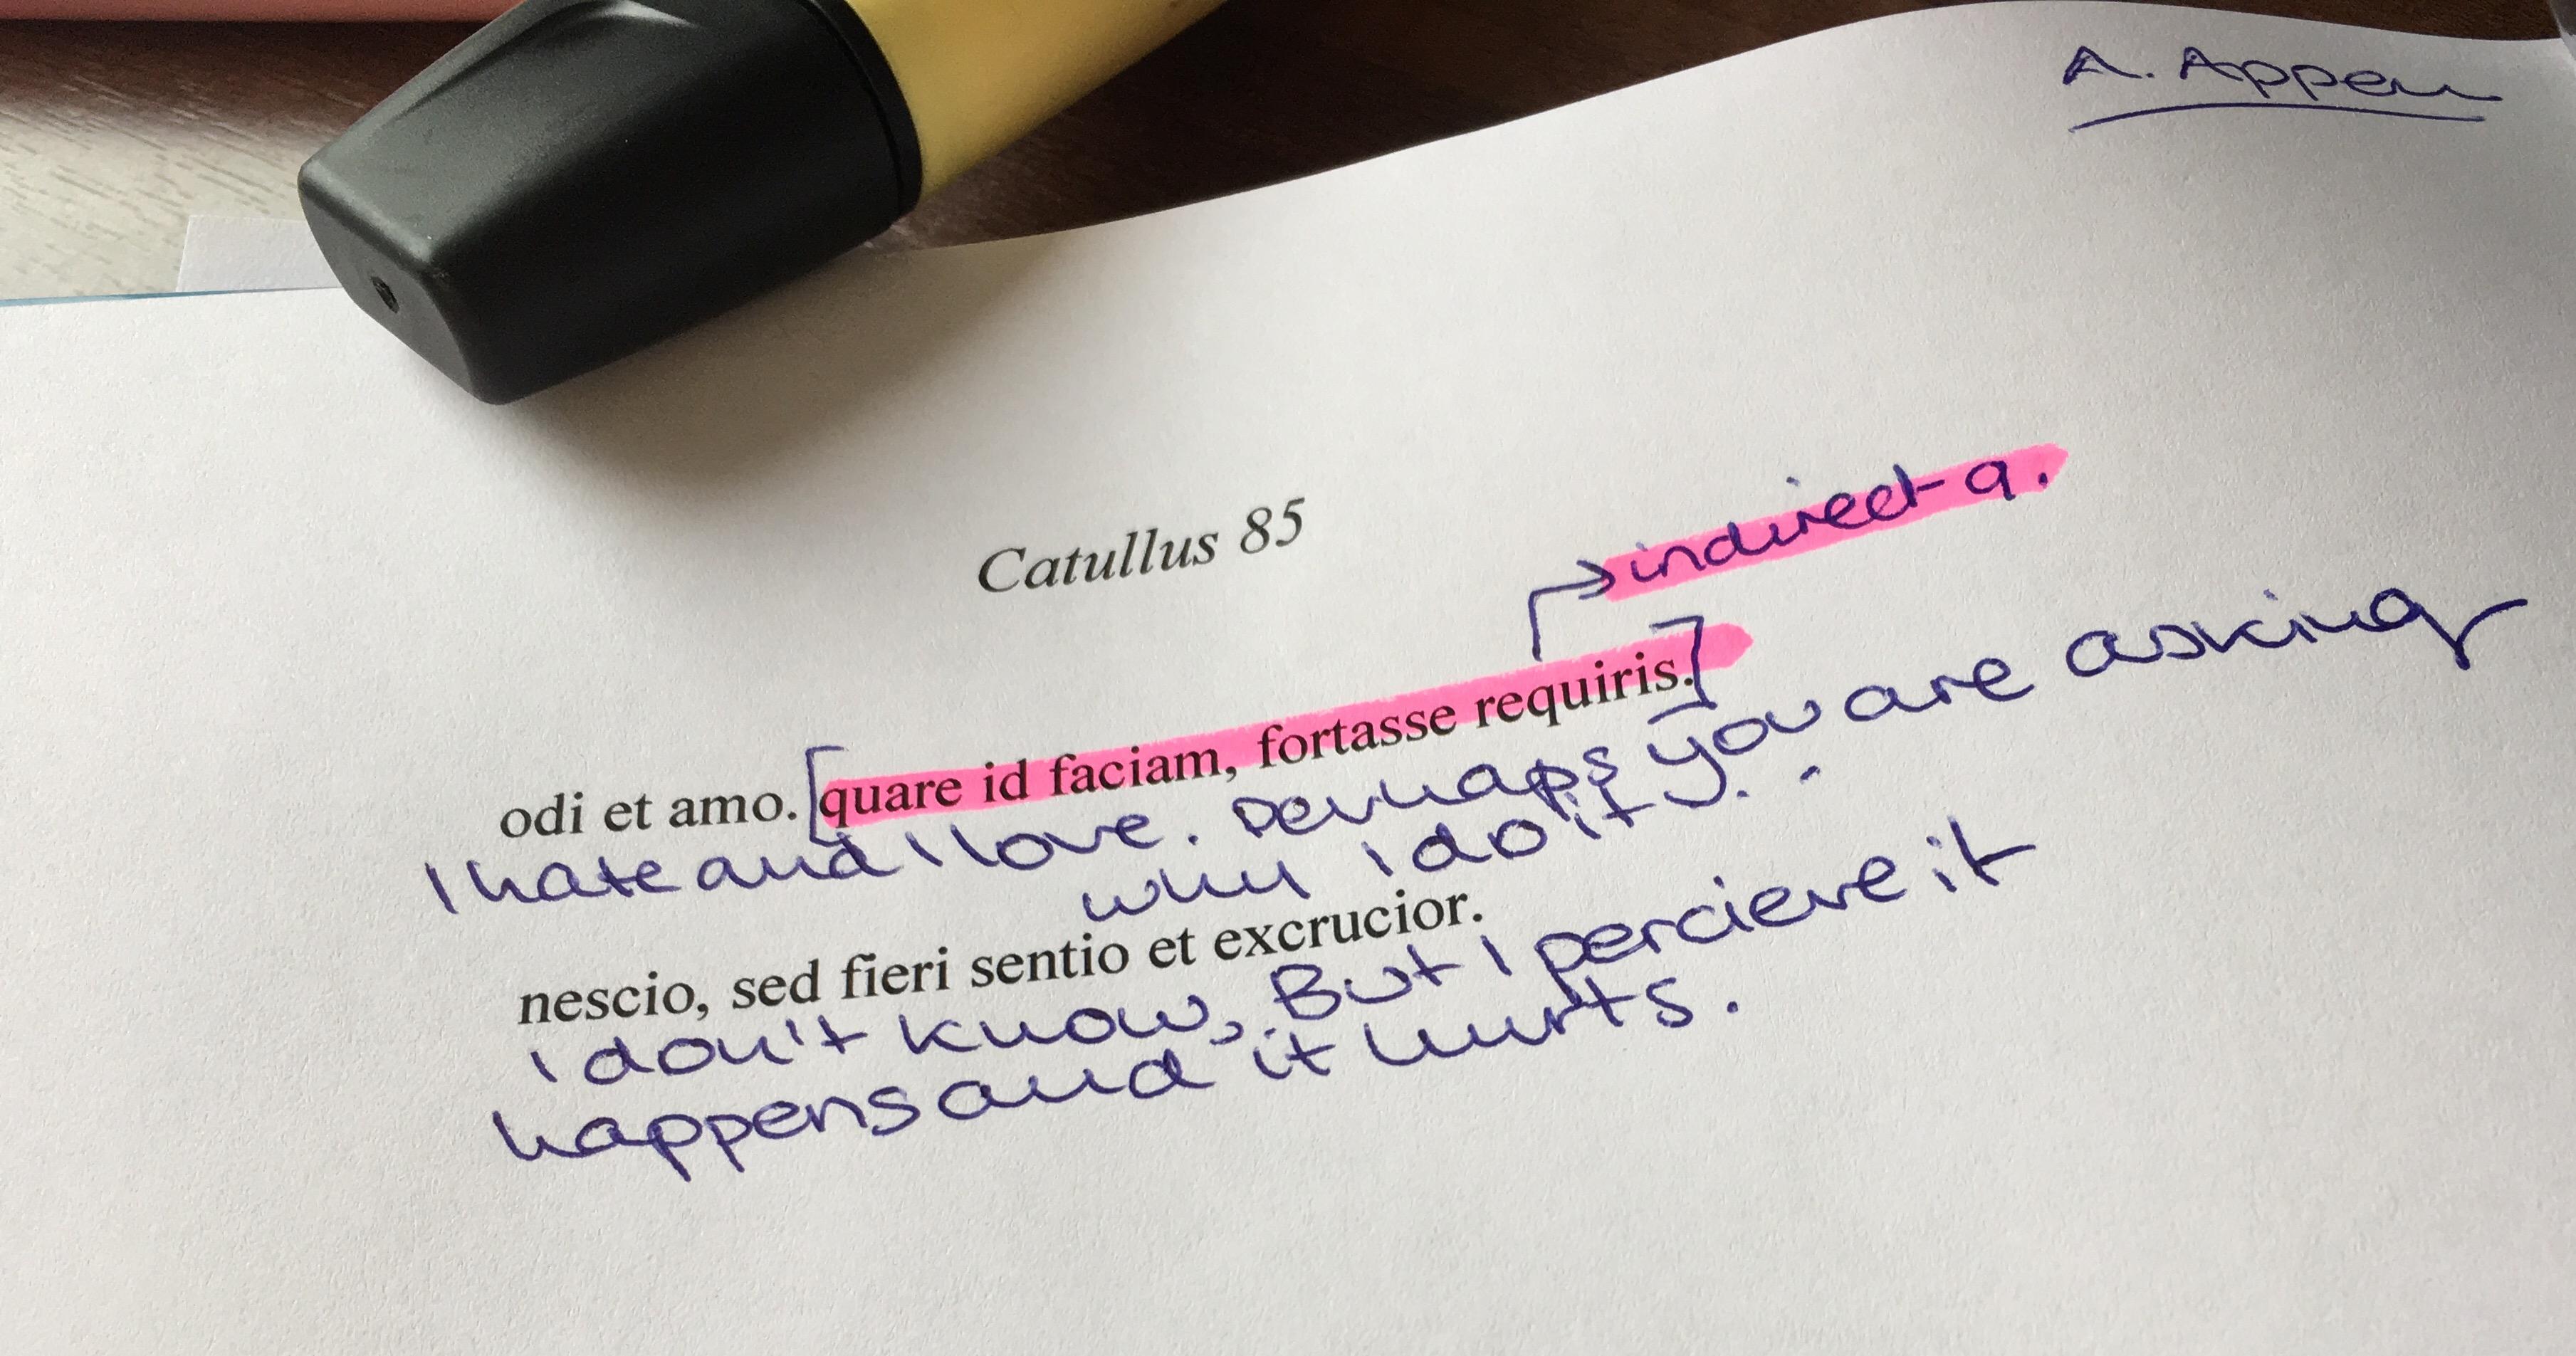 A. Appen
Catullus 85
→ indirect q.
odi et amo. [quare id faciam, fortasse requiris.]
I hate and I love. Perhaps you are asking
why I do it.
nescio, sed fieri sentio et excrucior.
I don't know,. But I percieve it
happens and it hurts.